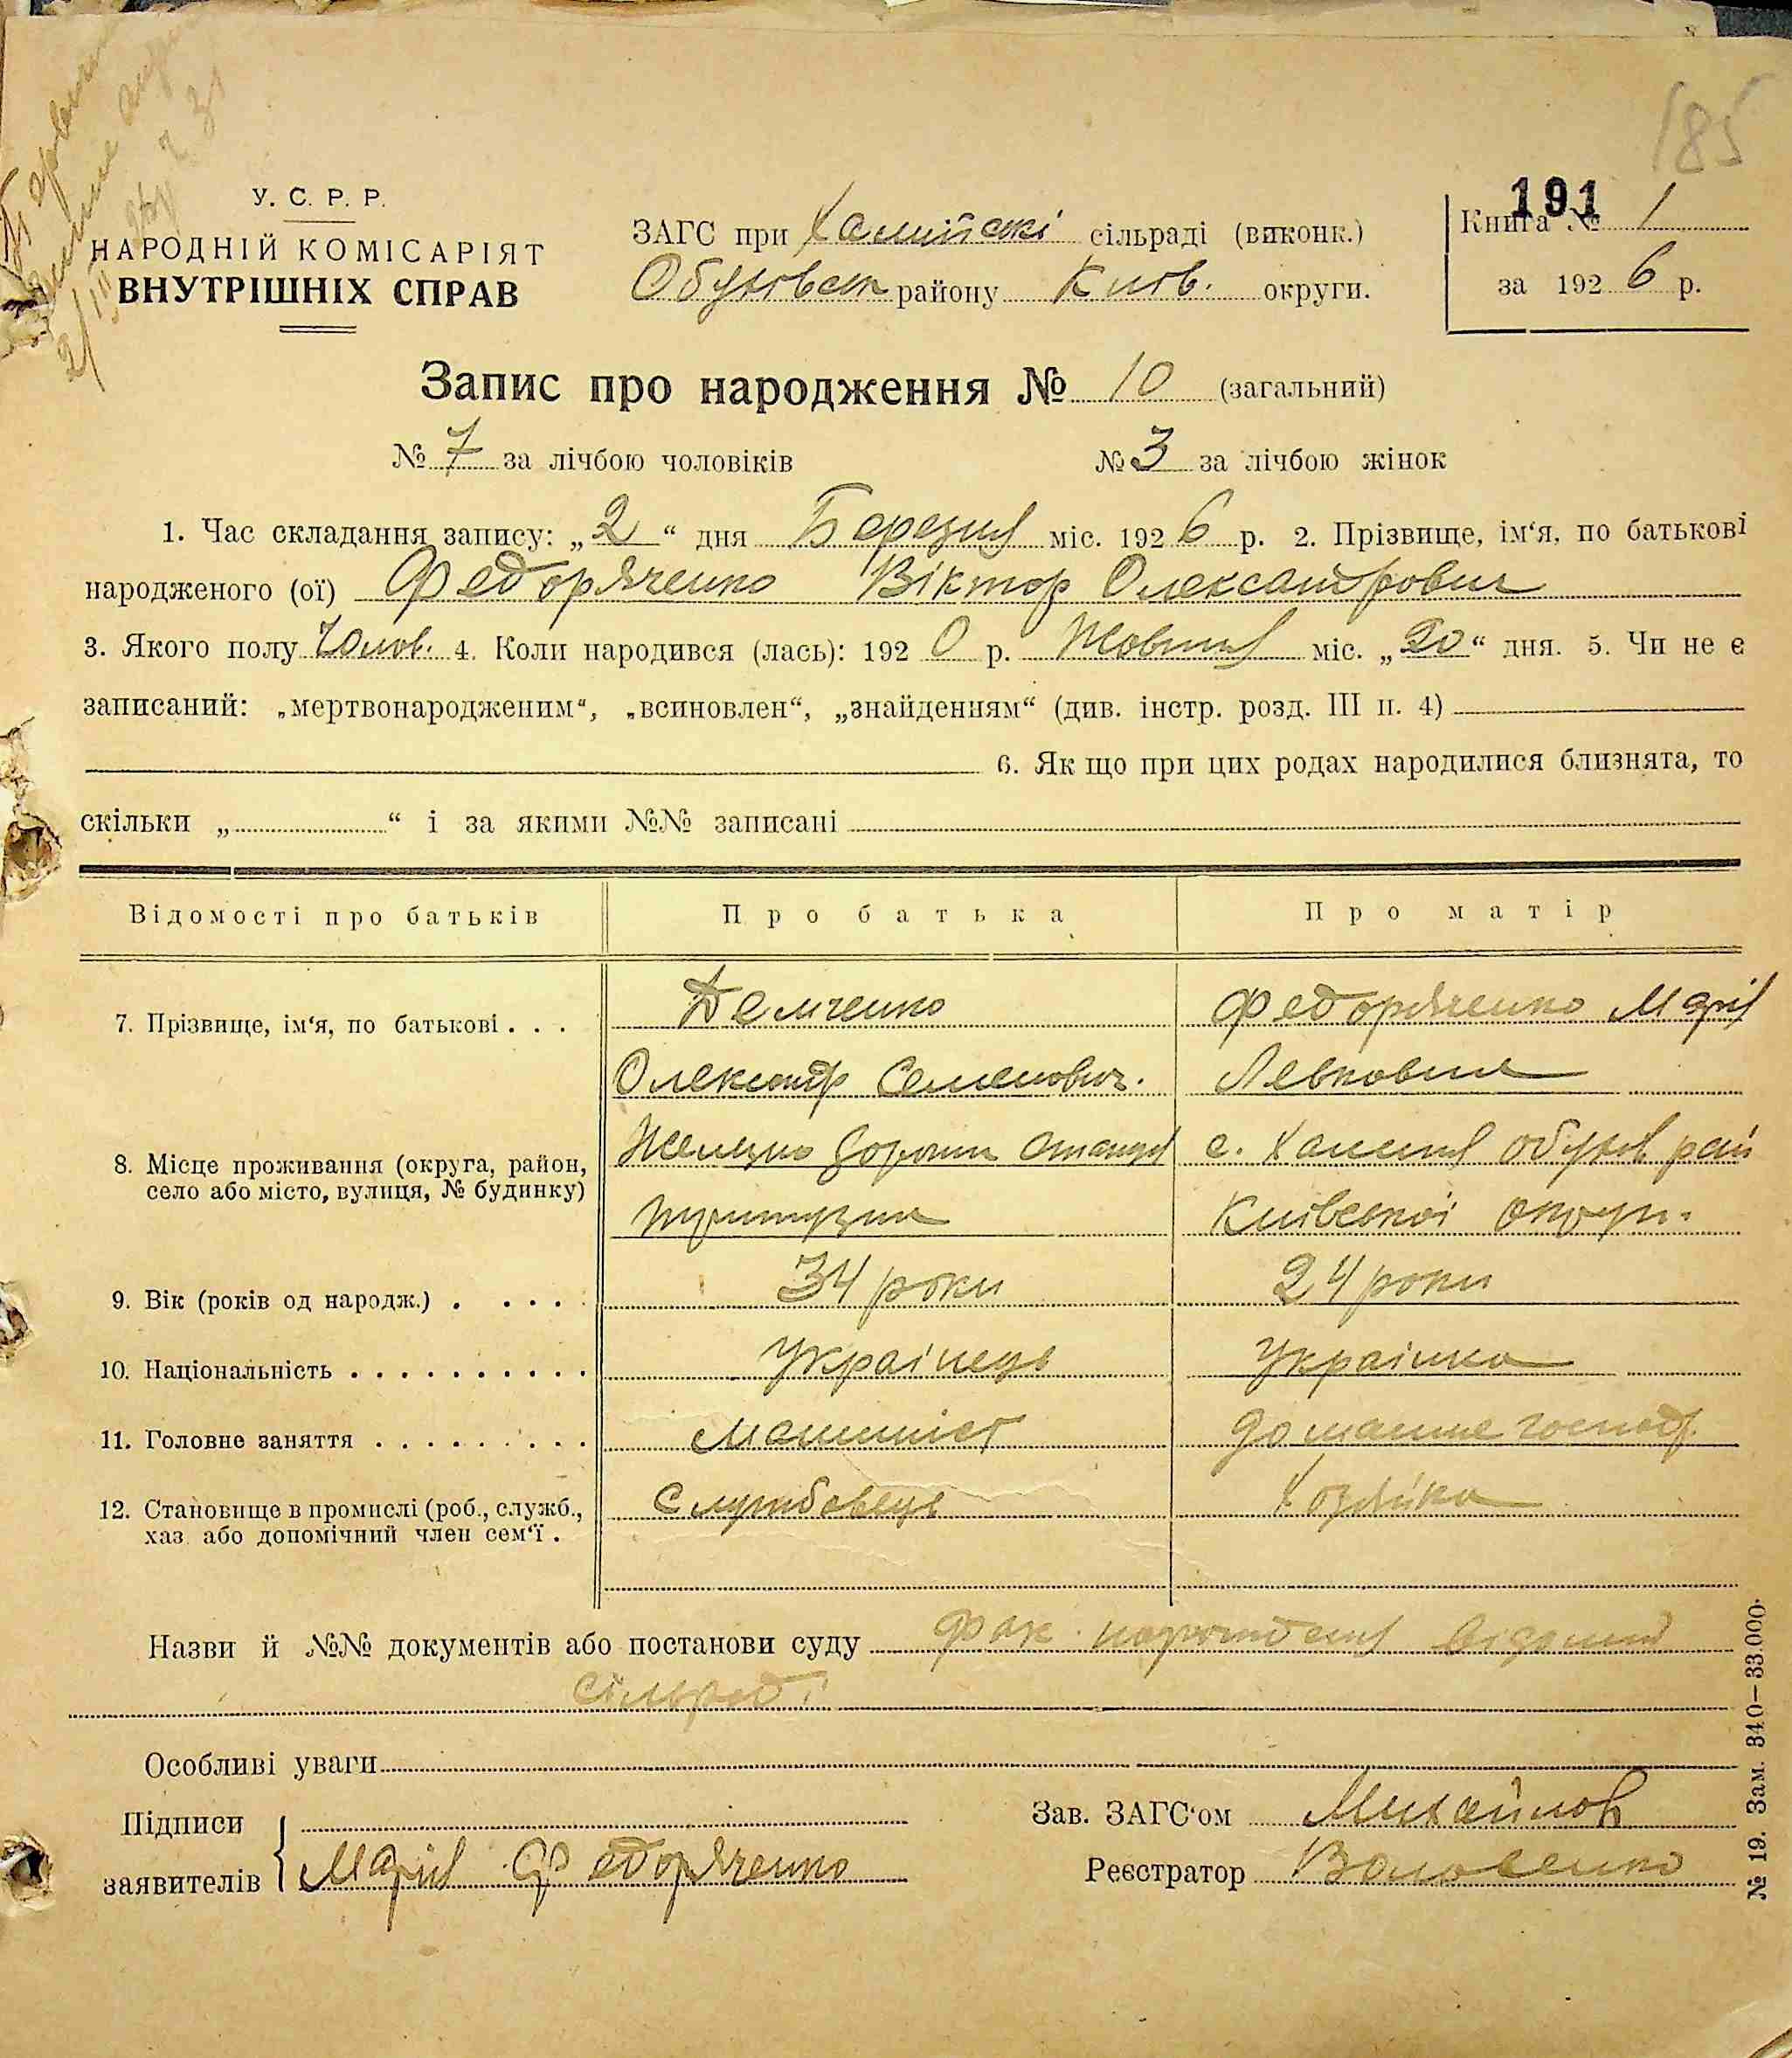 185
У. С. Р. Р.
НАРОДНІЙ КОМІСАРІЯТ
ВНУТРІШНІХ СПРАВ
ЗАГС при сільраді (виконк.)
району Київ. округи.
191
Книга № 1
за 1926 р.
Запис про народження № 10 (загальний)
№ 7 за лічбою чоловіків № 3 за лічбою жінок
1. Час складання запису: „2“ дня Березня міс. 1926 р. 2. Прізвище, ім‘я, по батькові
народженого (ої) Федоряченко Віктор Олександрович
3. Якого полу Чолов. 4. Коли народився (лась): 1920 р. Жовтня міс. „20“ дня. 5. Чи не є
записаний: „мертвонародженим“, „всиновлен“, „знайденням“ (див. інстр. розд. III п. 4)
6. Як що при цих родах народилися близнята, то
скільки „ “ і за якими №№ записані
Відомості про батьків Про батька Про матір
7. Прізвище, ім‘я, по батькові . . . Демченко Федоряченко Марія
Олександр Семенович. Левковна
8. Місце проживання (округа, район, село або місто, вулиця, № будинку) Желєзно станція с. обухов рай
Київської округ.
9. Вік (років од народж.) . . . . . 34 роки 24 роки
10. Національність . . . . . . . . . . Українець Українка
11. Головне заняття . . . . . . . . . Машиніст домашнє господ.
12. Становище в промислі (роб., служб., хаз. або допомічний член сем‘ї . Службовець Хозяйка
Назви й №№ документів або постанови суду Фак народження відомий
сільраді
Особливі уваги
Підписи заявителів Марія Федоряченко
Зав. ЗАГС‘ом Михайлов
Реєстратор
№ 19. Зам. 340—33.000.